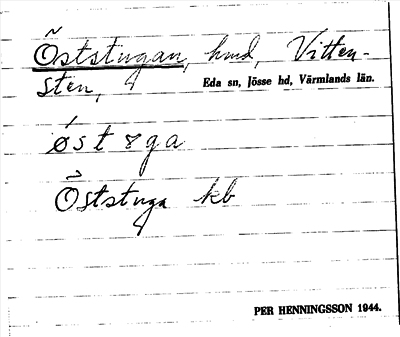 Öststugan, hmd, Vitten-
sten,
Eda sn, Jösse hd, Värmlands län.
øst ɤga
Öststuga kb
PER HENNINGSSON 1944.